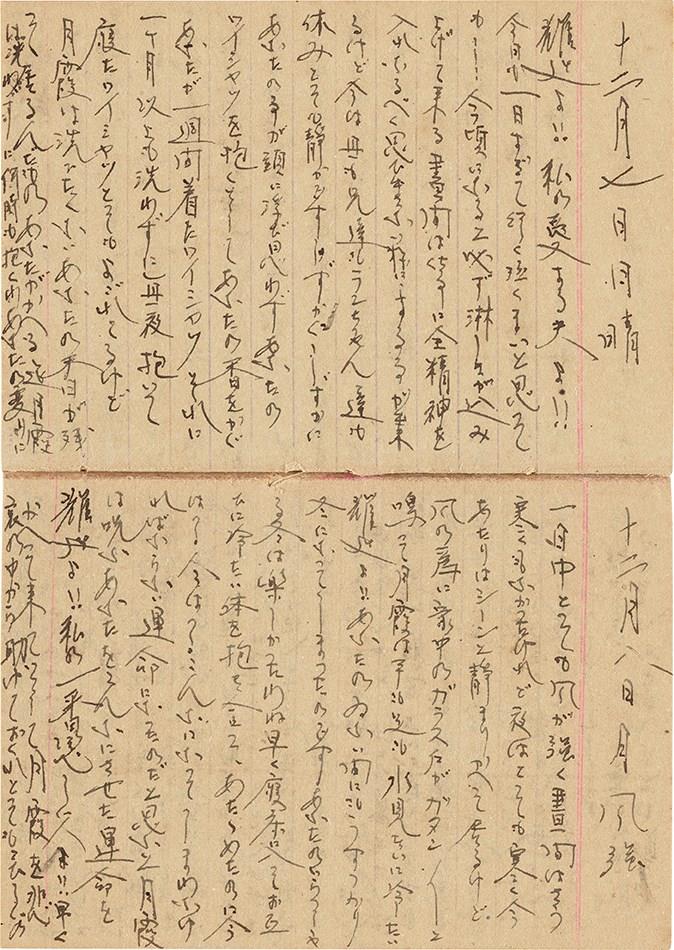 十二月七日日晴
耀よ!! 私の愛する夫よ!!
今日も一日すぎて行く泣くまいと思って
も 今頃になると必ず淋しさが込み
上げて来る 昼間は仕事に全精神を
入れなるべく思い出さない様にするが
るけど今は母も兄達もランちゃん達も
休みとても静かです しずかに しずかに
あなたの事が頭に浮び思わずあなたの
ワイシャツを抱くそしてあなたの香をかぐ
あなたが一週間着たワイシャツそれに
一ヶ月以上も洗わずに毎夜抱いて
寝たワイシャツとてもよごれてるけど
月霞は洗いたくないあなたの香が残
って居るんだもの あなたがかへる迄月霞
は洗わずに何時も抱くわあなたの変りに
十二月八日月風強
一日中とても風が強く昼間はさう
寒くもなかったけれど夜はとても寒く今
あたりはシーンと静まりかへって居るけど
風の為に家中のガラス戸がガタン〳〵と
鳴って月霞は手も足も氷見たいに冷たい
耀よ!! あなたのゐない間にもうすっかり
冬になってしまったのです あなたのいらっしゃ
る冬は楽しかったわね早く寝床に入ってお互
に冷たい体を抱き合って、あたゝめたのに今
は 今は こんなになってしまわなけ
ればならない運命になったのだと思ふと月霞
は呪ふあなたをこんなにさせた運命を
耀よ!! 私の一番愛しい人よ!! 早く
かへって来て そして月霞を悲
哀の中から助けておくれ とても